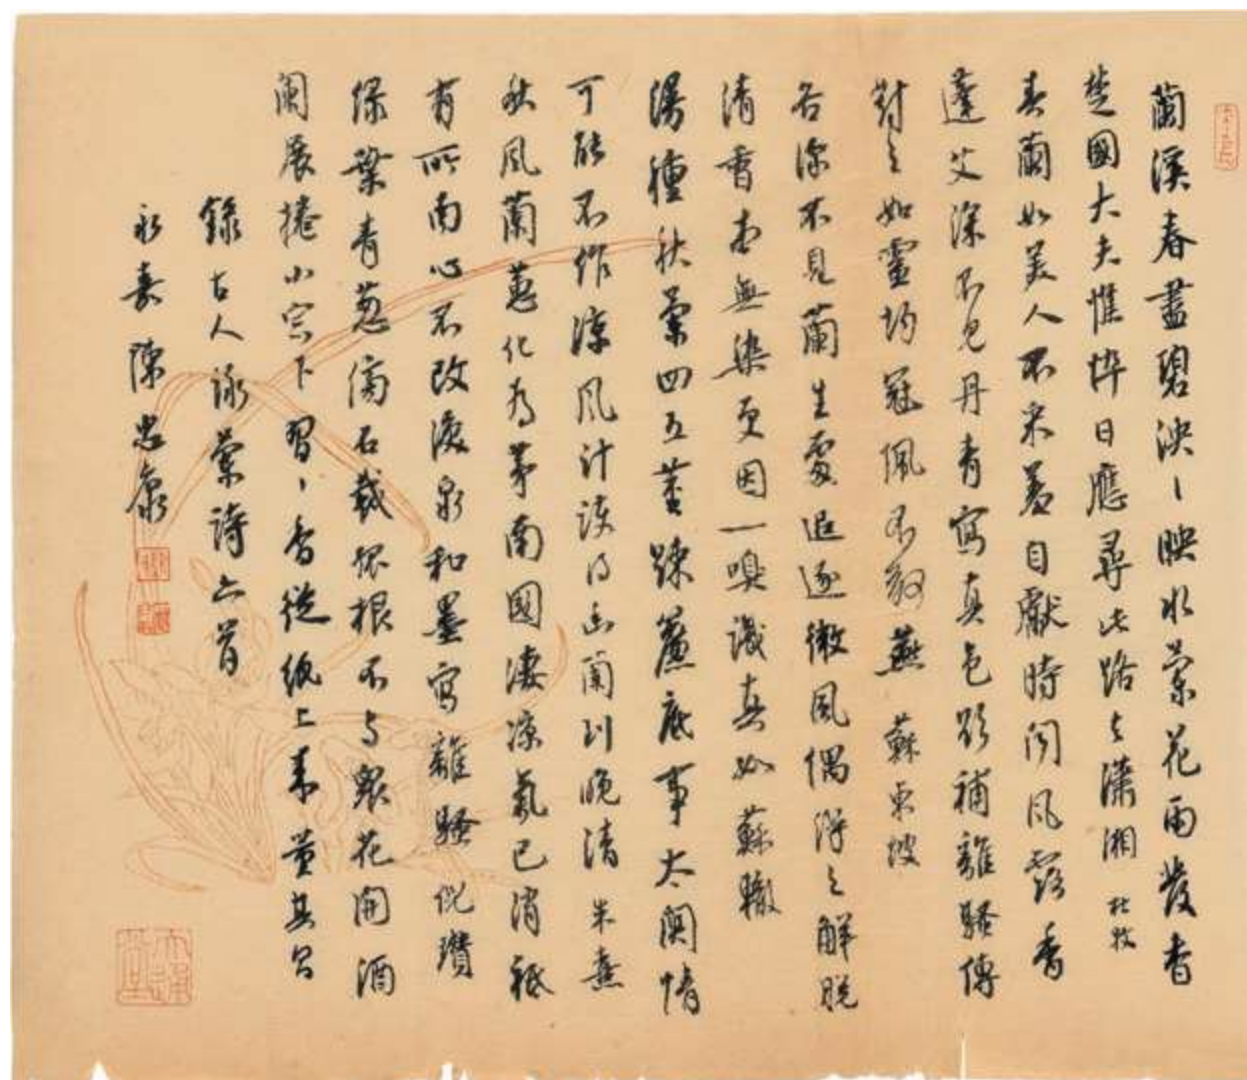 蘭溪春盡碧泱〻映水蘭花雨發香
楚國大夫憔悴日應尋此路去瀟湘 杜牧
春蘭如美人不采羞自獻時聞風露香
蓬艾深不見丹青寫真色欲補離騷傳
對之如靈均冠佩不敢燕 蘇東坡
谷深不見蘭生處追逐微風偶得之解脫
清香本無染更因一嗅識真如 蘇轍
漫種秋蘭四五莖疎簾底事太關情
可能不作涼風計護得幽蘭到晚清 朱熹
秋風蘭蕙化為茅南國淒涼氣已消祗
有所南心不改淚泉和墨寫離騷 倪瓚
綠葉青蔥傍石栽孤根不與眾花開酒
闌展捲小窗下習〻香從紙上來 董其昌
錄古人詠蘭詩六首
永嘉陳忠康